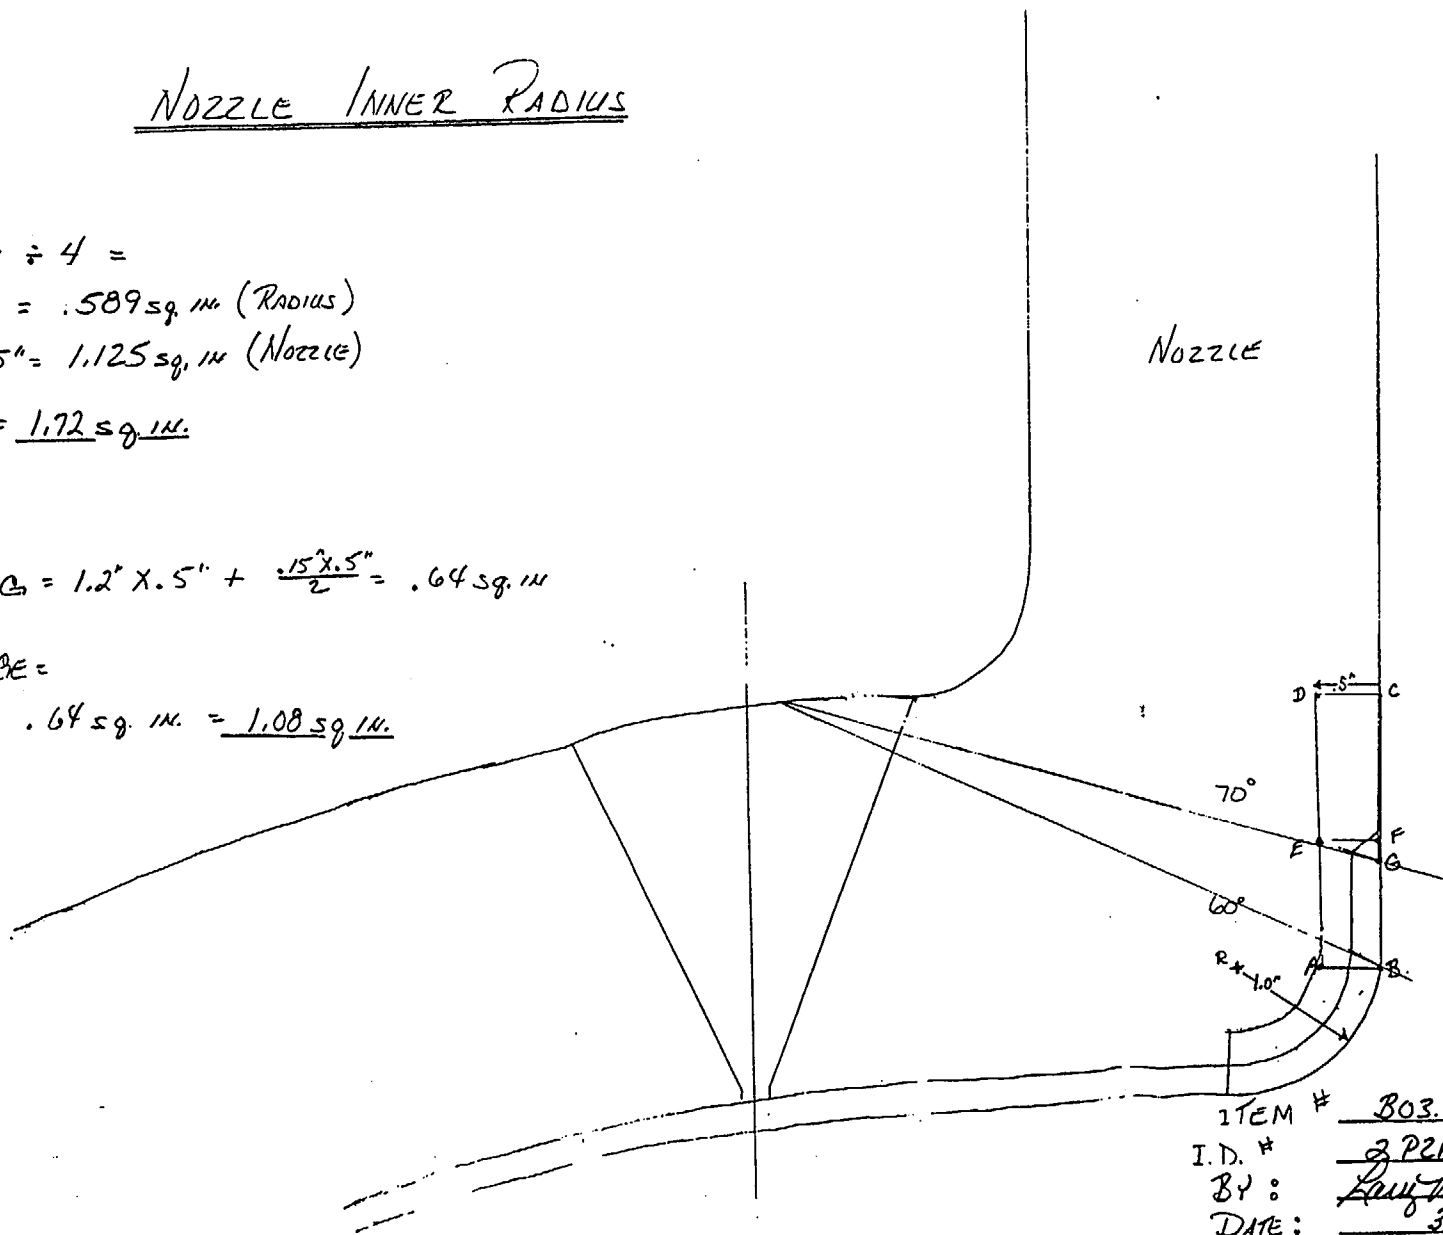 NOZZLE INNER RADIUS
÷ 4 =
= .589 sq. IN. (RADIUS)
5" = 1.125 sq. IN (NOZZLE)
= 1.72 sq. IN.
G = 1.2" X .5" + .15" X .5" / 2 = .64 sq. IN
BE =
.64 sq. IN. = 1.08 sq IN.
NOZZLE
D .5" C
70°
E F
G
60°
R 1.0"
A B
ITEM # B03.
I.D. # 2 PZR
BY:
DATE: 3